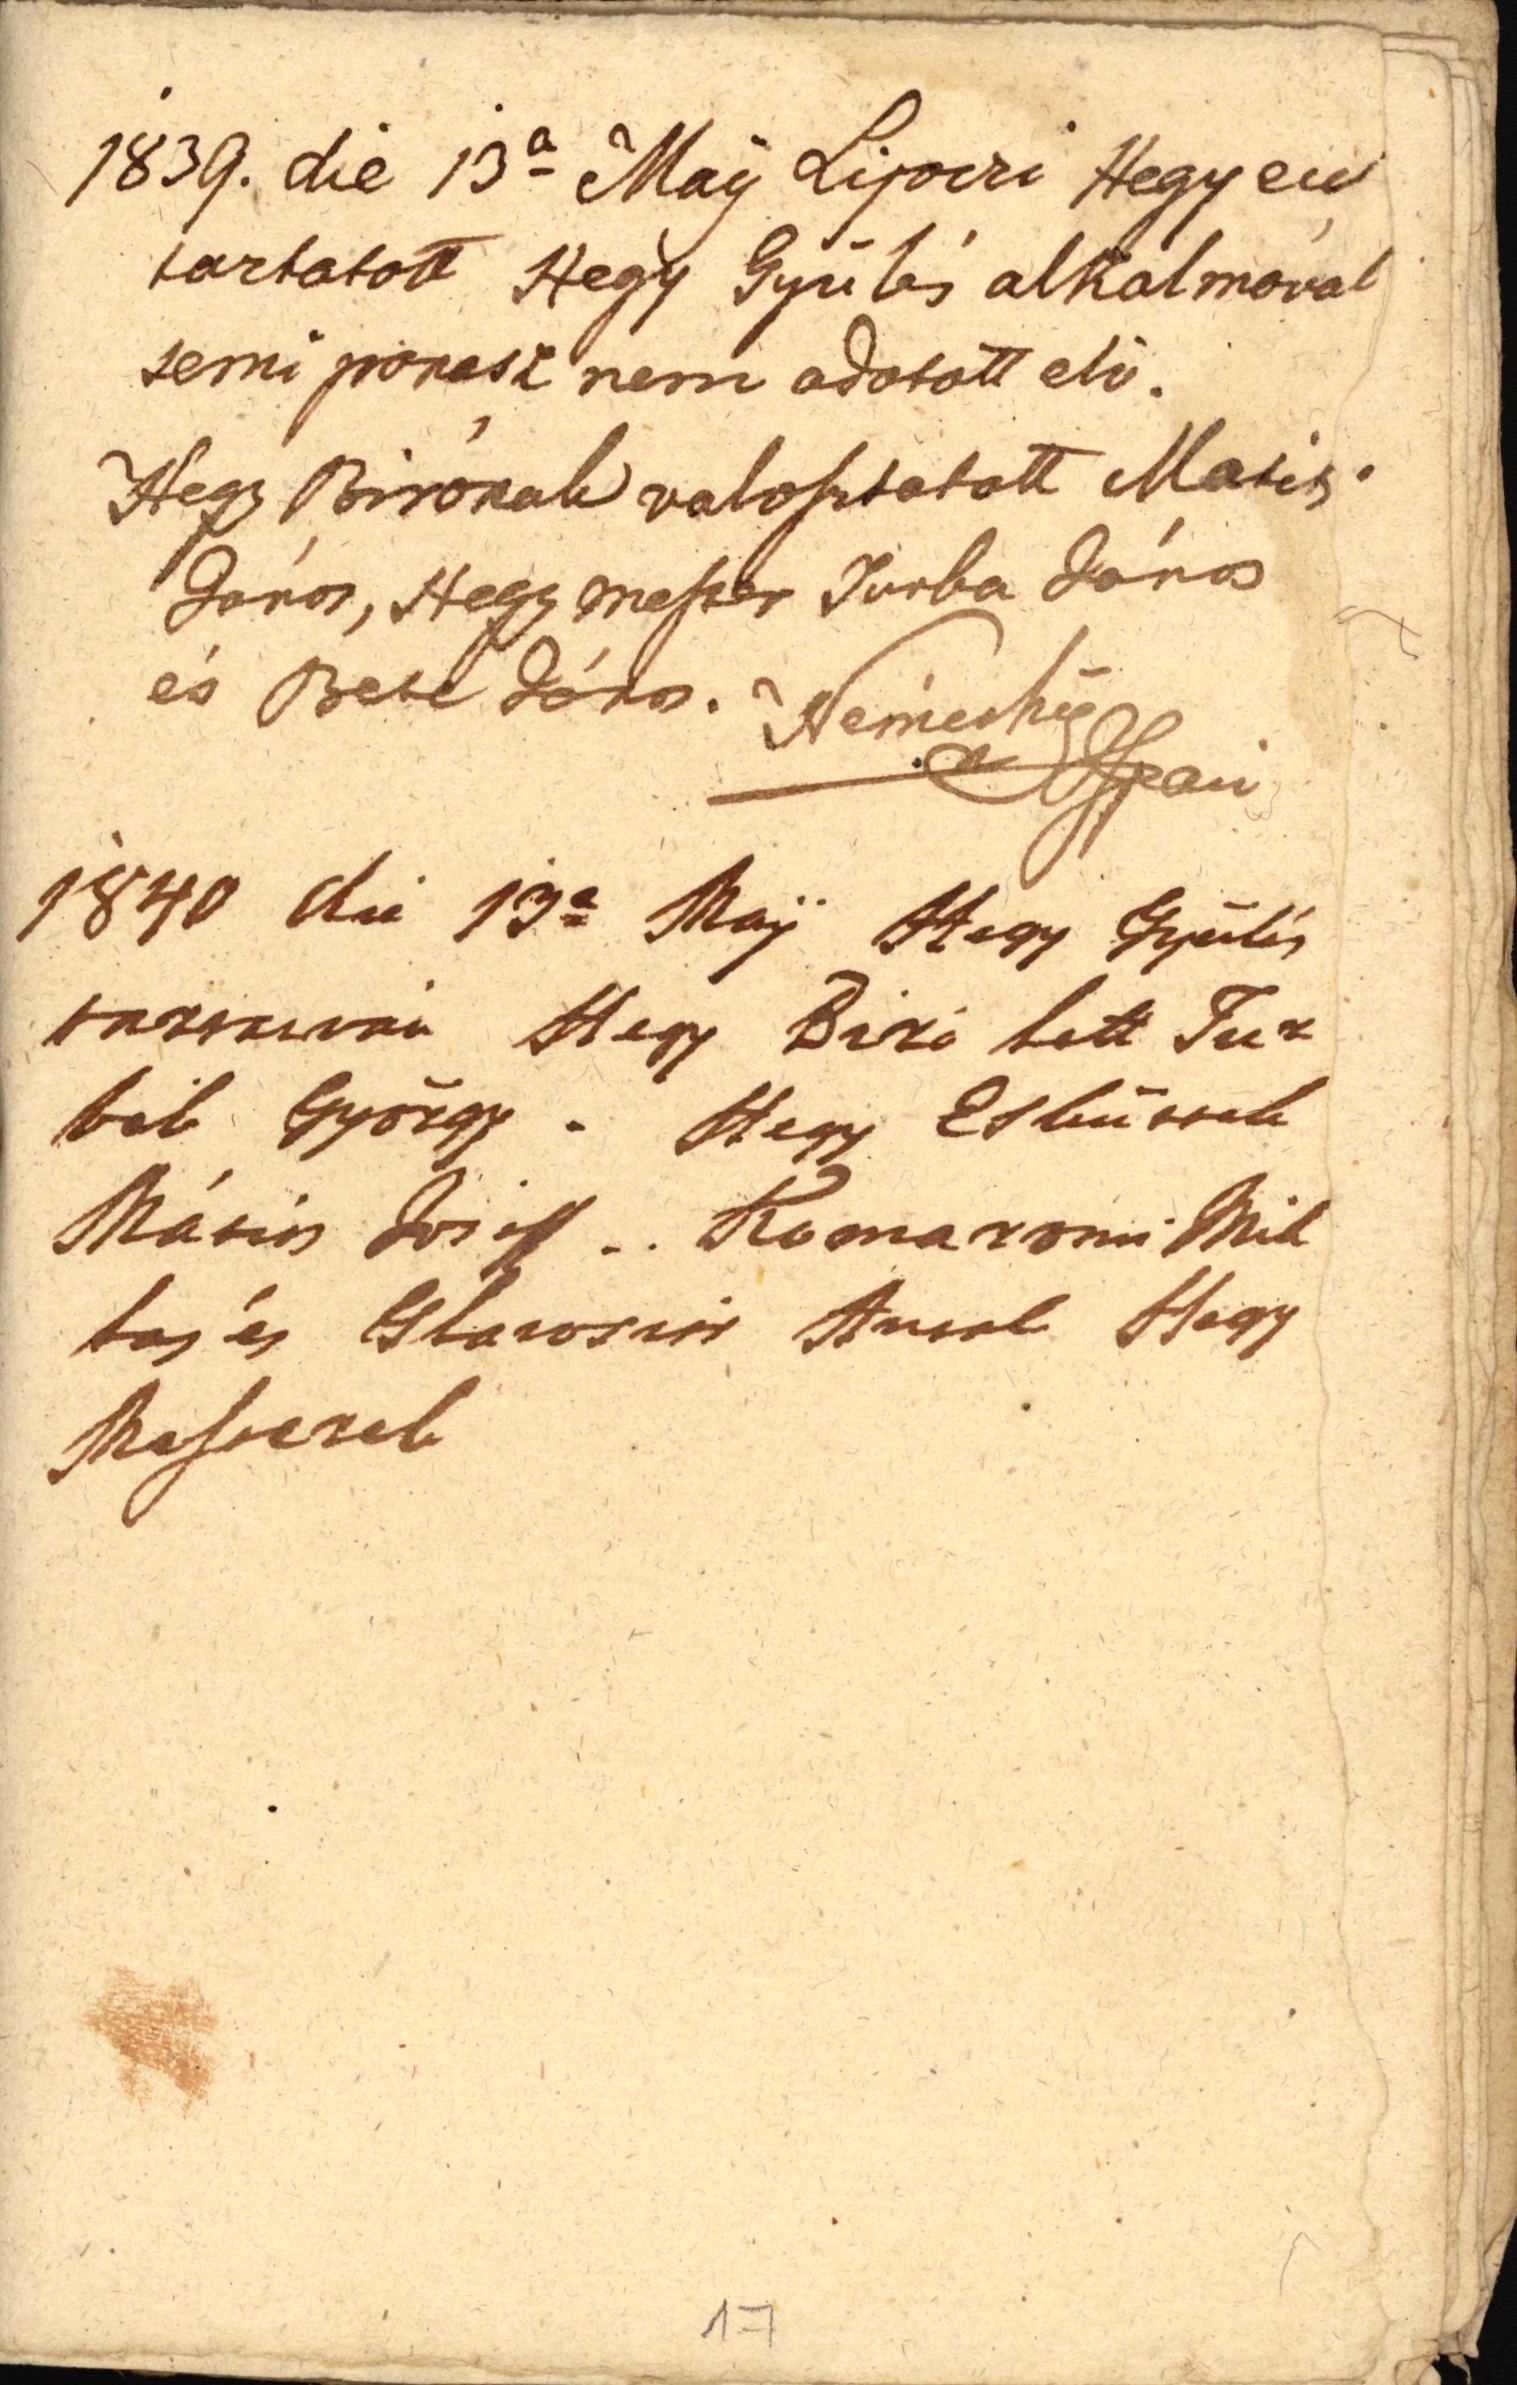 1839. die 13a Maÿ Lipoczi Hegyen
tartatott Hegy Gyülés alkalmával
semi panasz nem adatott elö.
Hegy Birónak valasztatott Matis
János, Hegy mester Turba János
és Bete János. Nemeshegÿ
Ispán
1840 die 13a Maÿ Hegy Gyülés
tartatván Hegy Biró lett Tur
bab György. Hegy Esküttek
Mátis Josef .. Komaromi Mik
los és Antal Hegy
Mesterek
17